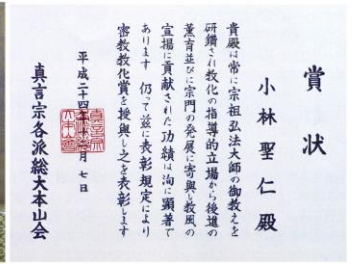 賞状
小林聖仁殿
貴殿は常に宗祖弘法大師の御教えを
研鑽され教化の指導的立場から後進の
薫育並びに宗門の発展に寄与し教風の
宣揚に貢献された功績は洵に顕著で
あります 仍って茲に表彰規定により
密教教化賞を授与し之を表彰します
平成二十四年十二月七日
真言宗各派総大本山会